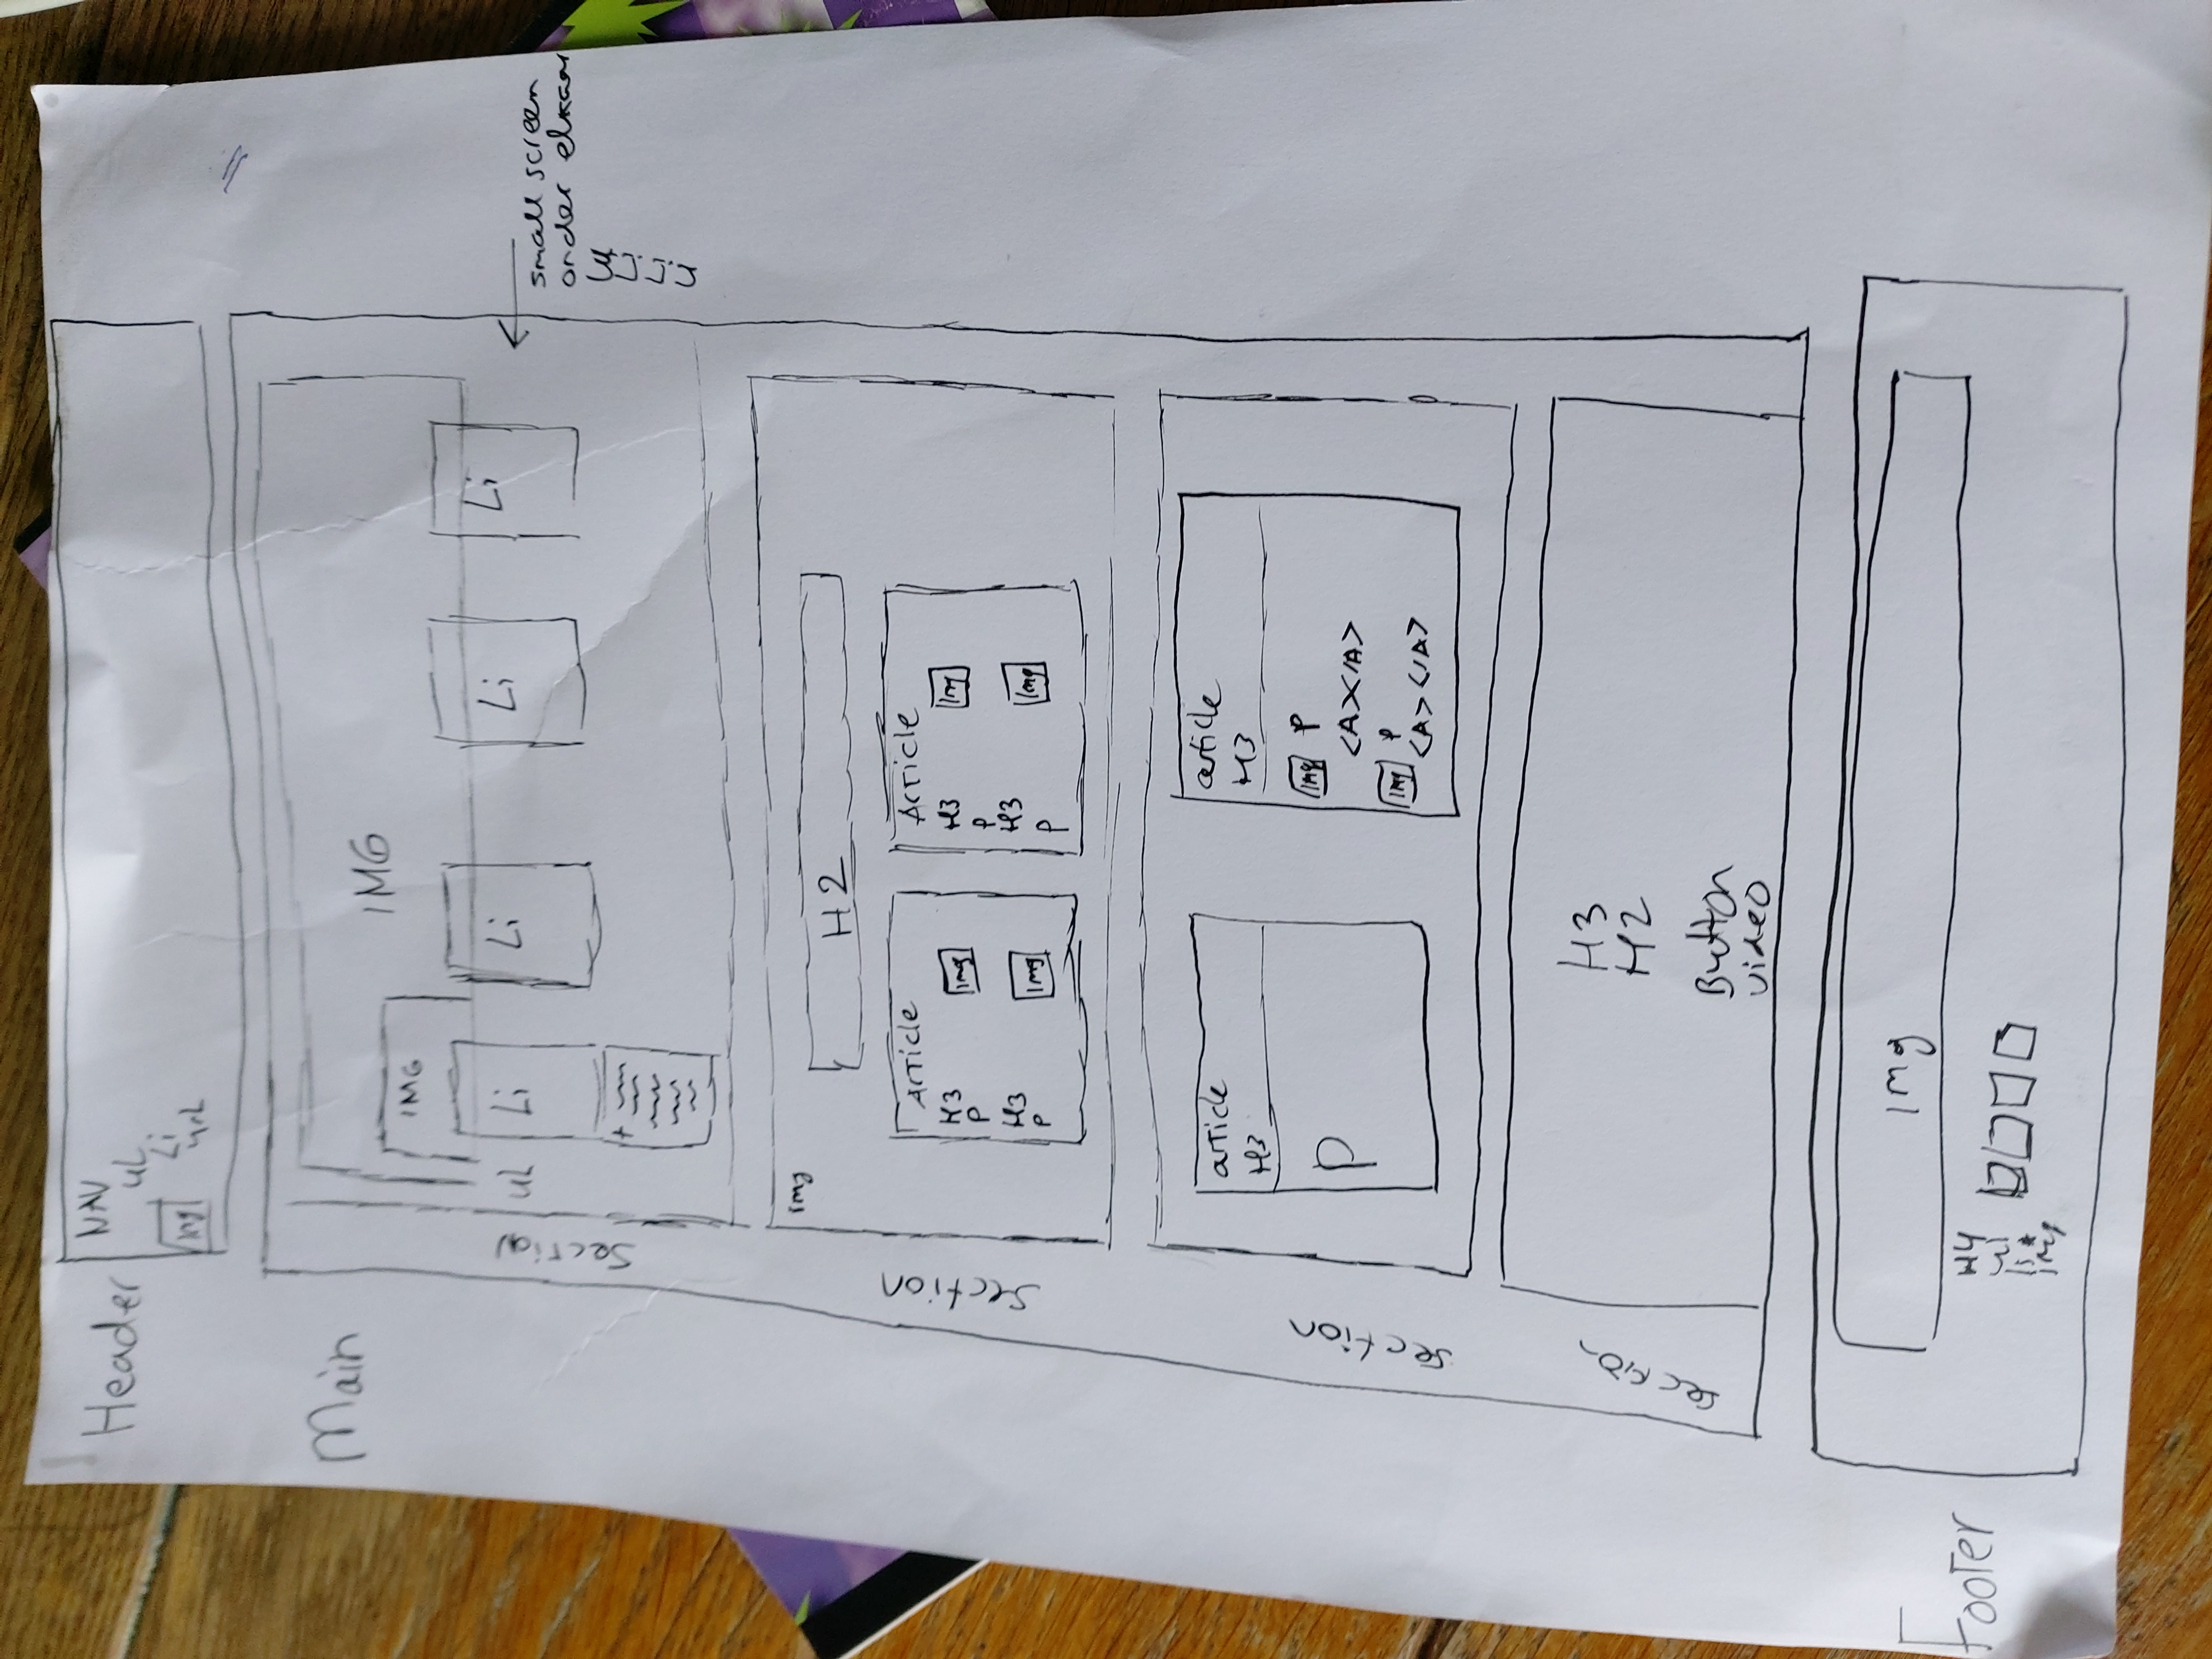 Header
NAV
uL
Li
img
url
Main
IMG
IMG
Section
uL
Li
Li
Li
Li
small screen
onder elkaar
Section
img
H2
Article
H3
P
H3
P
img
img
Article
H3
P
H3
P
img
img
Section
article
H3
P
article
H3
img P
<A></A>
img P
<A></A>
Section
H3
H2
Button
video
Footer
img
H4
ul
img